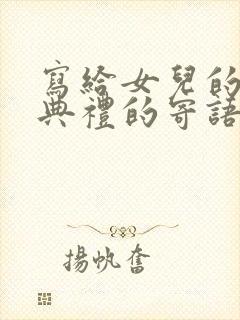 寫給女兒的
典禮的寄語
揚帆奮